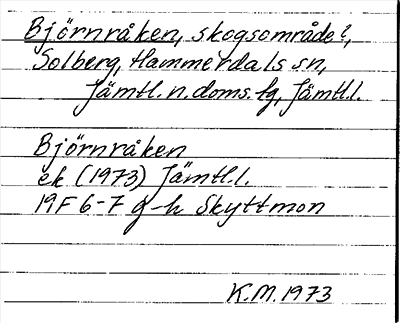 Björnråken, skogsområde?,
Solberg, Hammerdals sn,
Jämtl.n.doms.fg, Jämtl.l.
Björnråken
ek (1973) Jämtl.l.
19F 6-7 g-h Skyttmon
K.M.1973